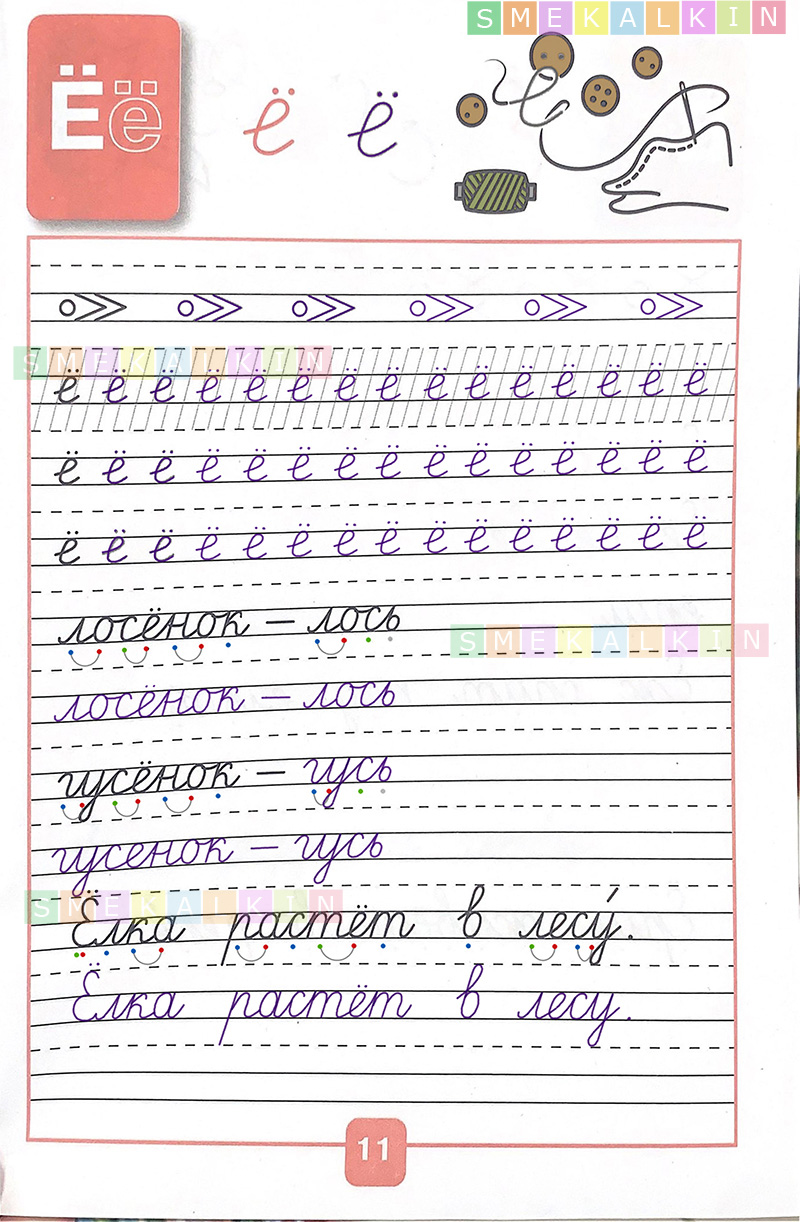 SMEKALKIN
Ёё ё ё
SMEKALKIN
ё ё ё ё ё ё ё ё ё ё ё ё ё ё ё
ё ё ё ё ё ё ё ё ё ё ё ё ё ё ё
ё ё ё ё ё ё ё ё ё ё ё ё ё ё ё
лосёнок – лось
SMEKALKIN
лосёнок – лось
гусёнок – гусь
гусенок – гусь
SMEKALKIN
Ёлка растёт в лесу́.
Ёлка растёт в лесу.
11